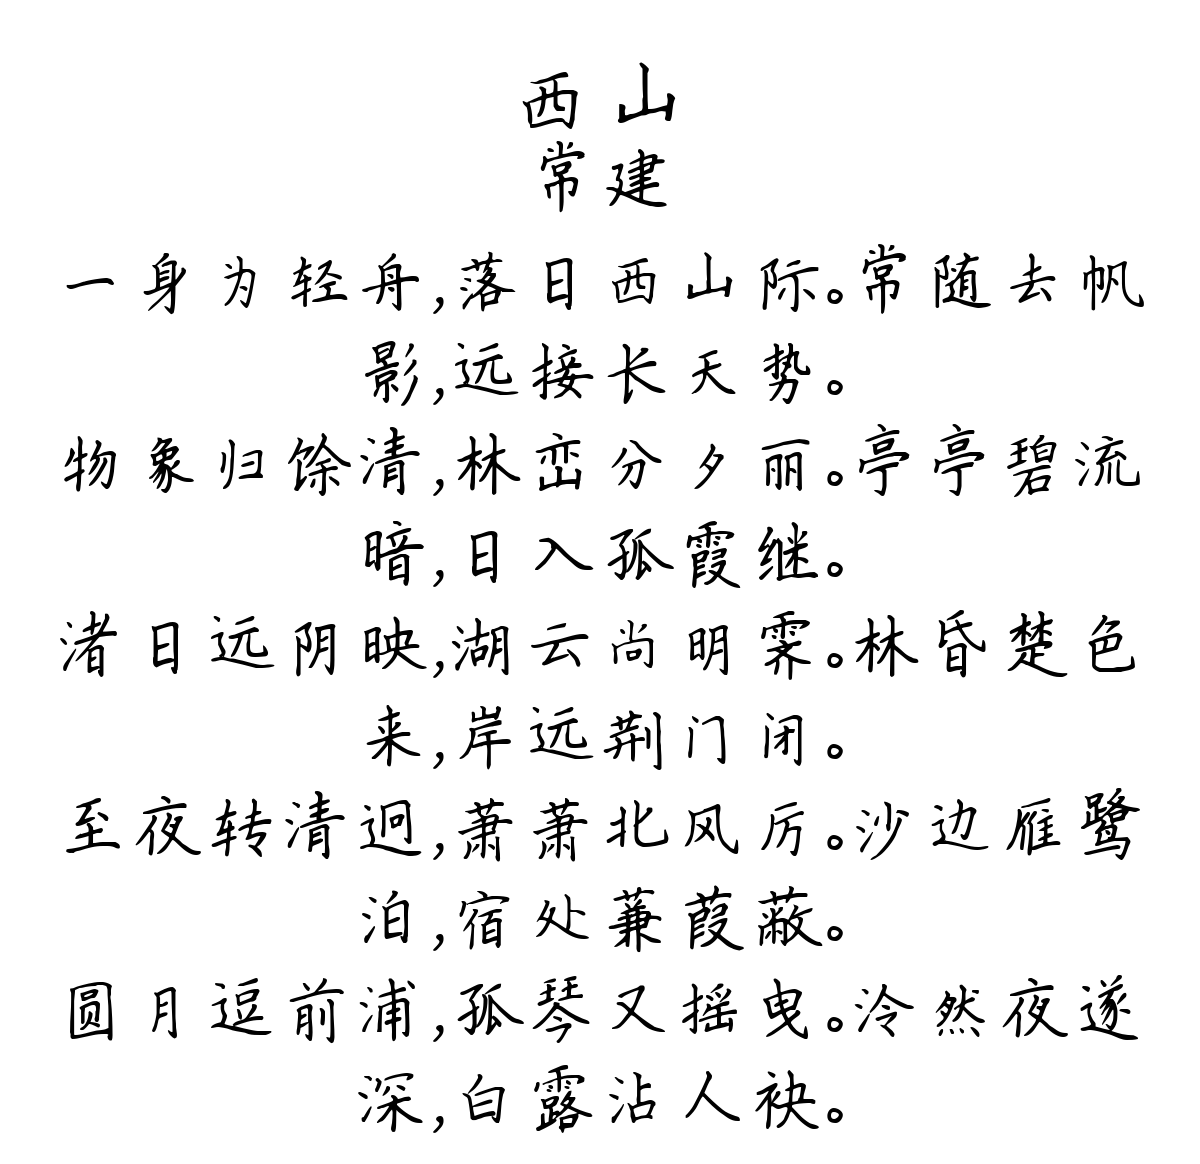 西山
常建
一身为轻舟,落日西山际。常随去帆
影,远接长天势。
物象归馀清,林峦分夕丽。亭亭碧流
暗,日入孤霞继。
渚日远阴映,湖云尚明霁。林昏楚色
来,岸远荆门闭。
至夜转清迥,萧萧北风厉。沙边雁鹭
泊,宿处蒹葭蔽。
圆月逗前浦,孤琴又摇曳。泠然夜遂
深,白露沾人袂。